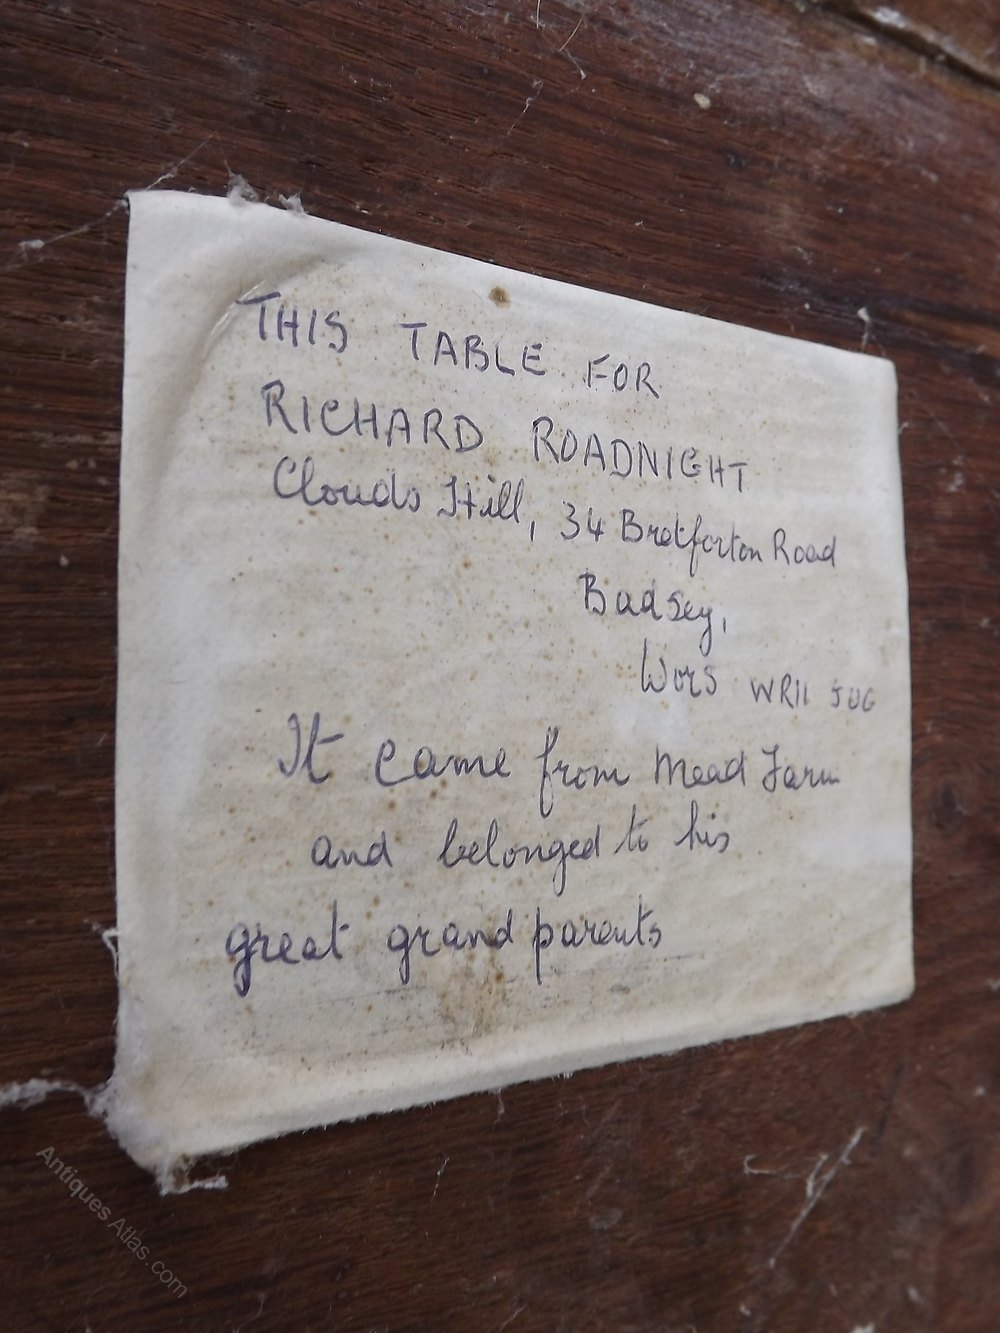 THIS TABLE FOR
RICHARD ROADNIGHT
Clouds Hill, 34 Bretforton Road
Badsey,
Wors WR11 5UG
It came from Mead Farm
and belonged to his
great grand parents
Antiques Atlas.com